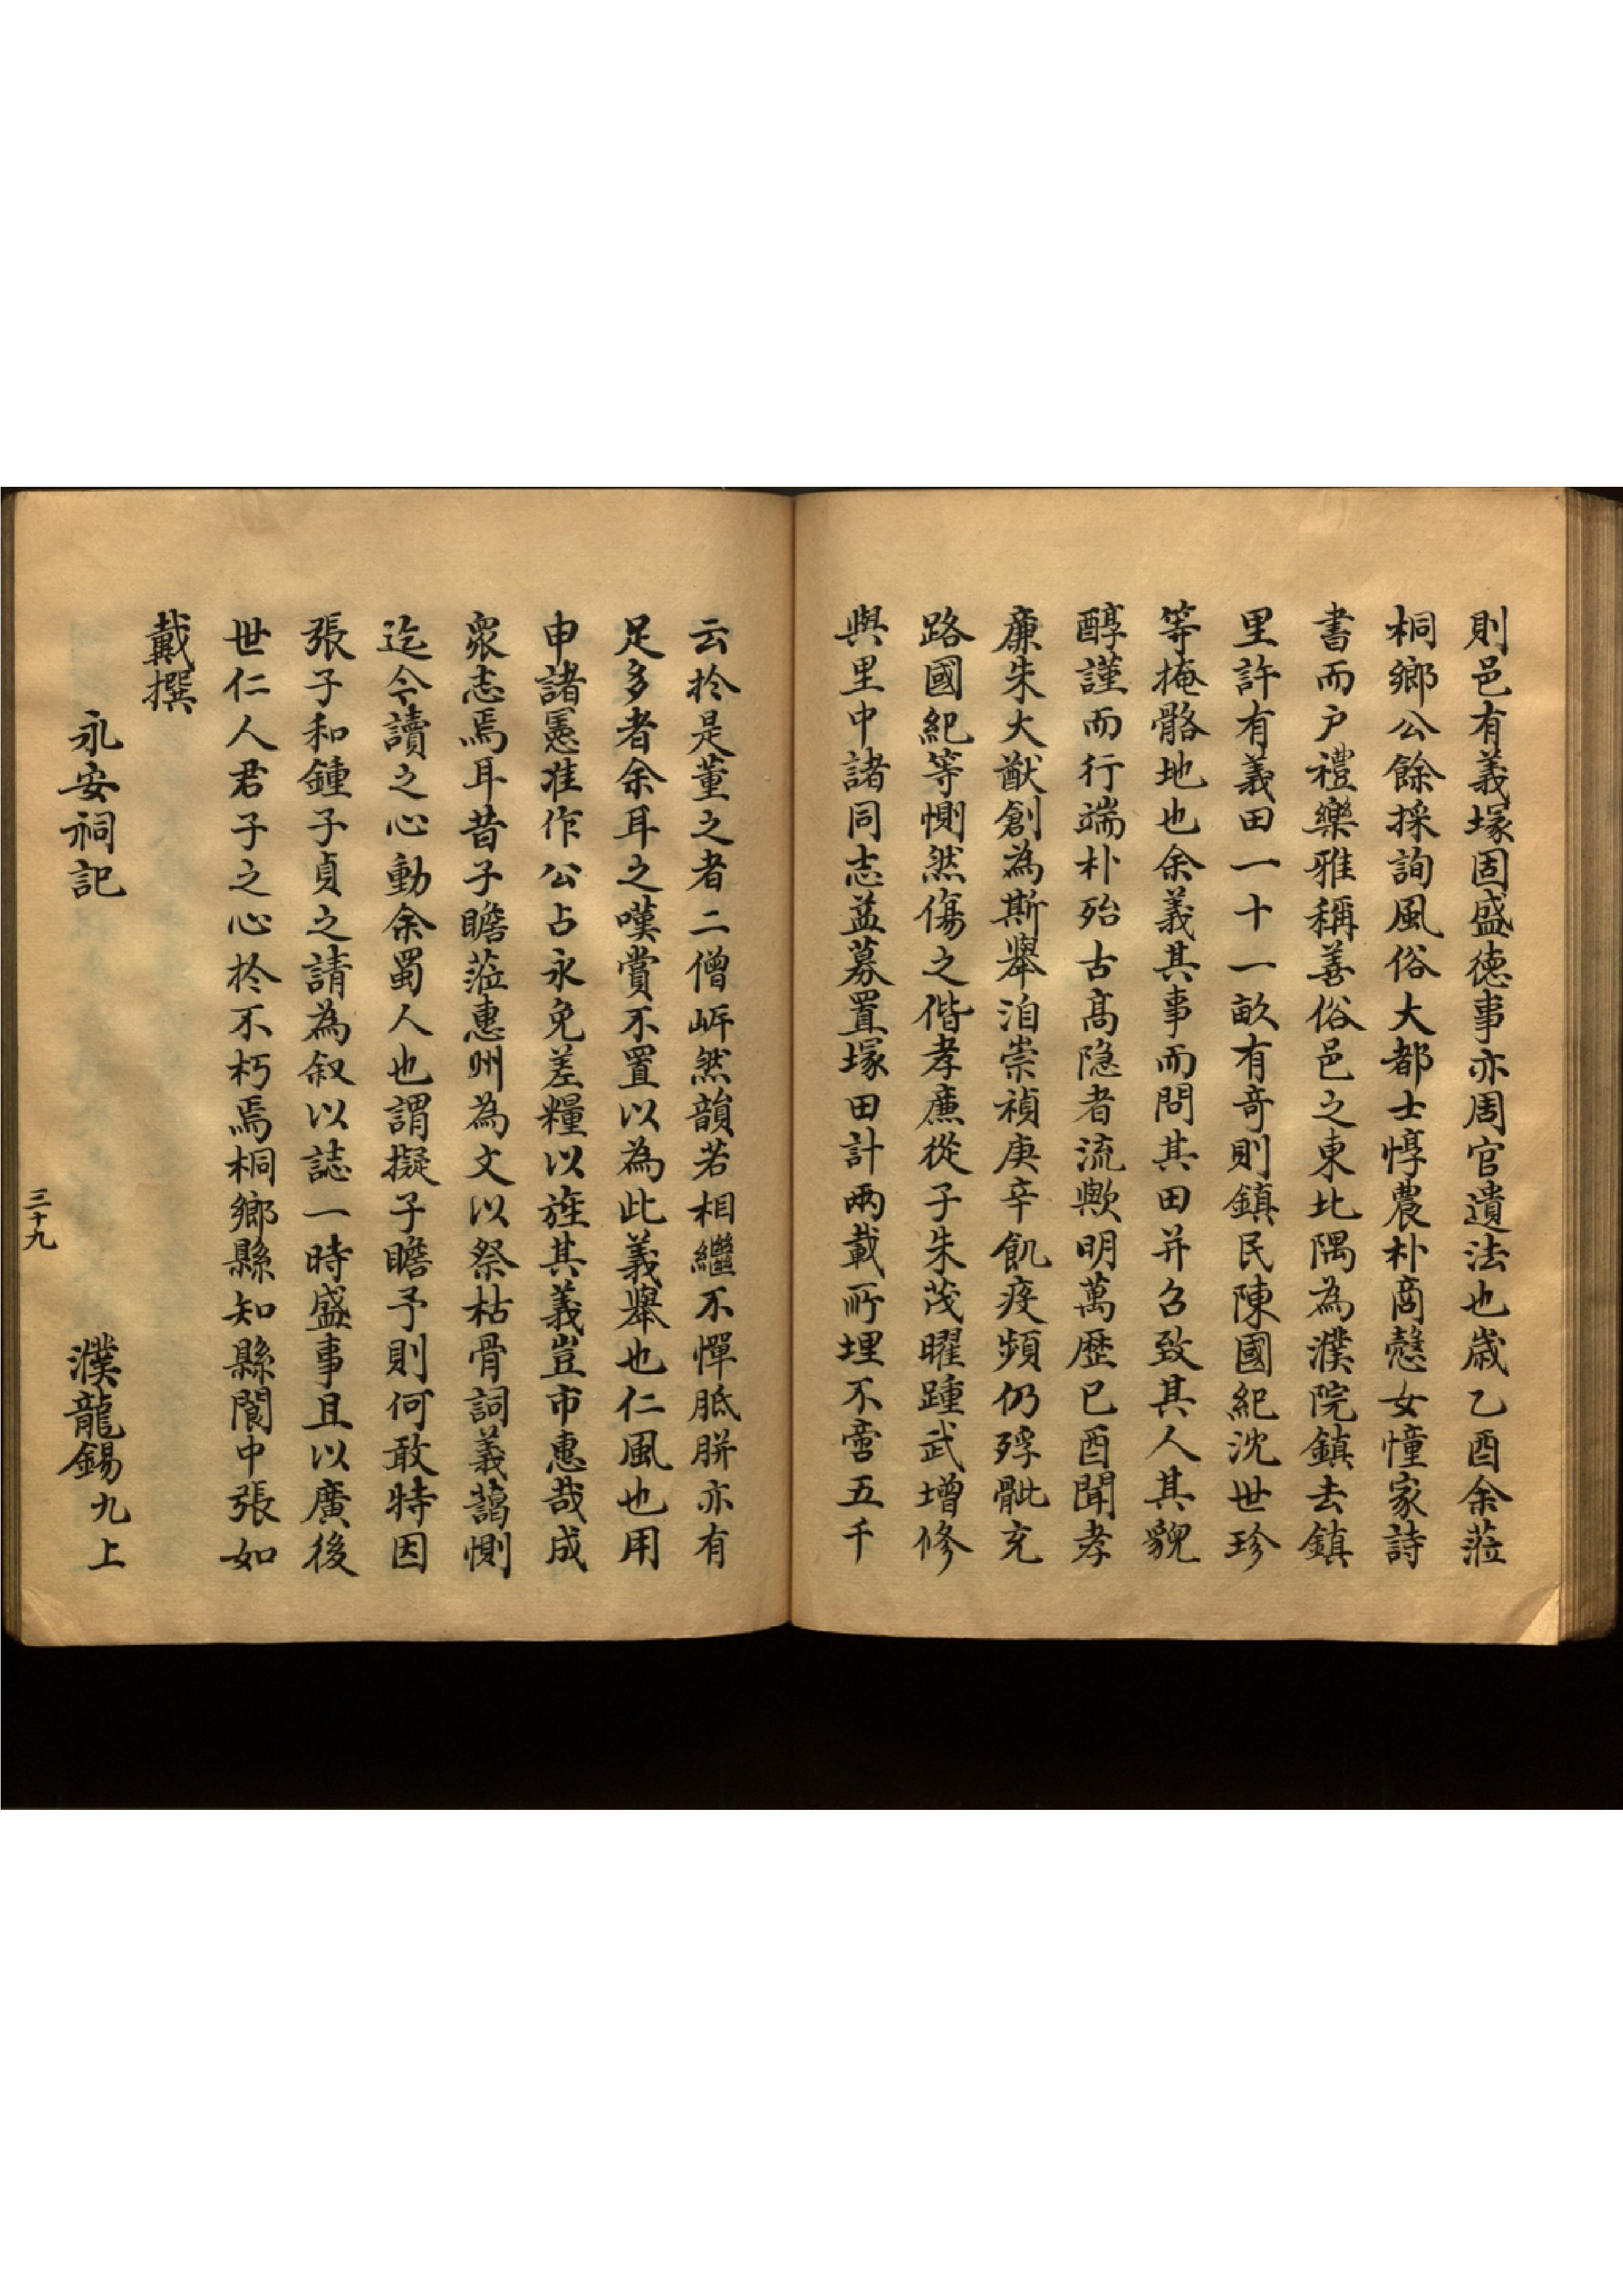 則邑有義塚固盛徳事亦周官遺法也歲乙酉余蒞
桐鄉公餘採詢風俗大都士惇農朴商慤女憧家詩
書而户禮樂雅稱善俗邑之東北隅為濮院鎮去鎮
里許有義田一十一畝有竒則鎮民陳國紀沈世珍
等掩骼地也余義其事而問其田并召致其人其貌
醇謹而行端朴殆古髙隐者流歟明萬歷已酉聞孝
廉朱大猷創為斯舉洎崇禎庚辛飢疫頻仍殍骴充
路國紀等惻然傷之偕孝廉從子朱茂曜踵武增修
與里中諸同志益募置塚田計兩載所埋不啻五千
云於是董之者二僧岓然韻若相繼不憚胝胼亦有
足多者余耳之嘆賞不置以為此義舉也仁風也用
申諸憲准作公占永免差糧以旌其義豈市惠哉成
衆志焉耳昔子瞻蒞惠州為文以祭枯骨詞義藹惻
迄今讀之心動余蜀人也謂擬子瞻予則何敢特因
張子和鍾子貞之請為叙以誌一時盛事且以廣後
世仁人君子之心於不朽焉桐鄉縣知縣閬中張如
戴撰
永安祠記　濮龍錫九上
三十九